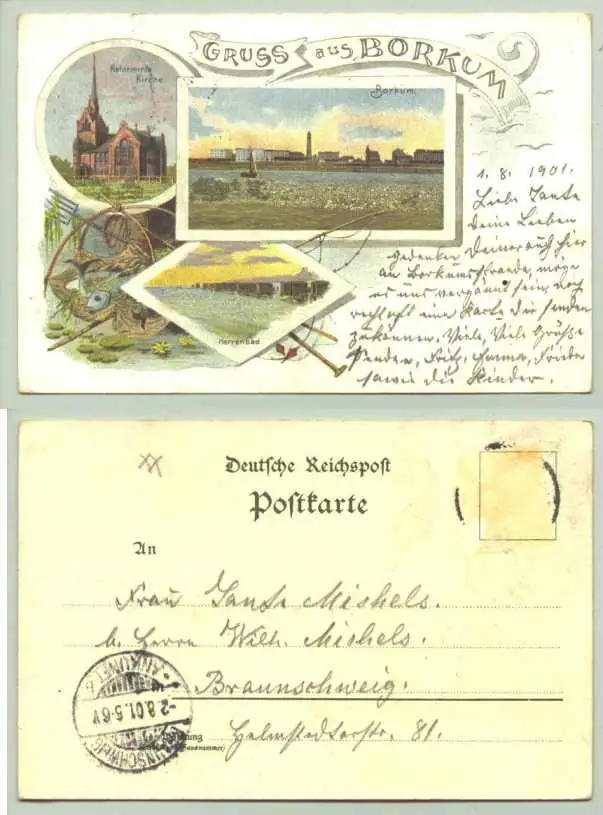 GRUSS aus BORKUM
Reformirte
Kirche
Borkum.
Herrenbad
1. 8. 1901.
Liebe Tante
Deine Lieben
gedenken Deiner auch hier
am Borkumstrande, möge
es uns vergönnt sein noch
eine Karte Dir senden
zu können. Viele, Viele Grüße
senden, Fritz, Emma, Frieda
sowie die Kinder.
Deutsche Reichspost
Postkarte
An
Frau Tante Mishels.
b. Herrn Wilh. Mishels.
Braunschweig.
Helmstedterstr. 81.
ANKUNFT
-2.8.01.5-6V